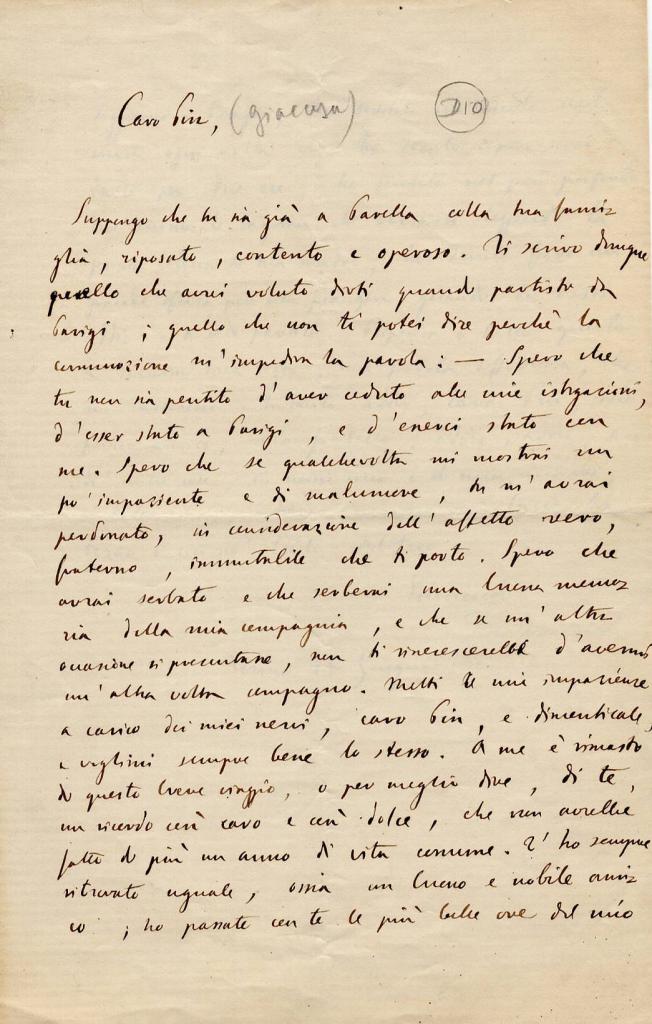 Caro Pin, (Giacosa) D10
Suppongo che tu sia già a Parella colla tua fami=
glia, riposato, contento e operoso. Ti scrivo dunque
quello che avrei voluto dirti quando partisti da
Parigi; quello che non ti potei dire perchè la
commozione m'impediva la parola: — Spero che
tu non sia pentito d'aver ceduto alle mie istigazioni,
d'esser stato a Parigi, e d'esserci stato con
me. Spero che se qualchevolta mi mostrai un
po' impaziente e di malumore, tu m'avrai
perdonato, in considerazione dell'affetto vero,
fraterno, immutabile che ti porto. Spero che
avrai serbato e che serberai una buona memo=
ria della mia compagnia, e che se un'altra
occasione si presentasse, non ti rincrescerebbe d'avermi
un'altra volta compagno. Metti le mie impazienze
a carico dei miei nervi, caro Pin, e dimenticale,
e voglimi sempre bene lo stesso. A me è rimasto
di questo breve viaggio, o per meglio dire, di te,
un ricordo così caro e così dolce, che non avrebbe
fatto di più un anno di vita comune. T'ho sempre
ritrovato uguale, ossia un buono e nobile ami=
co; ho passate con te le più belle ore del mio